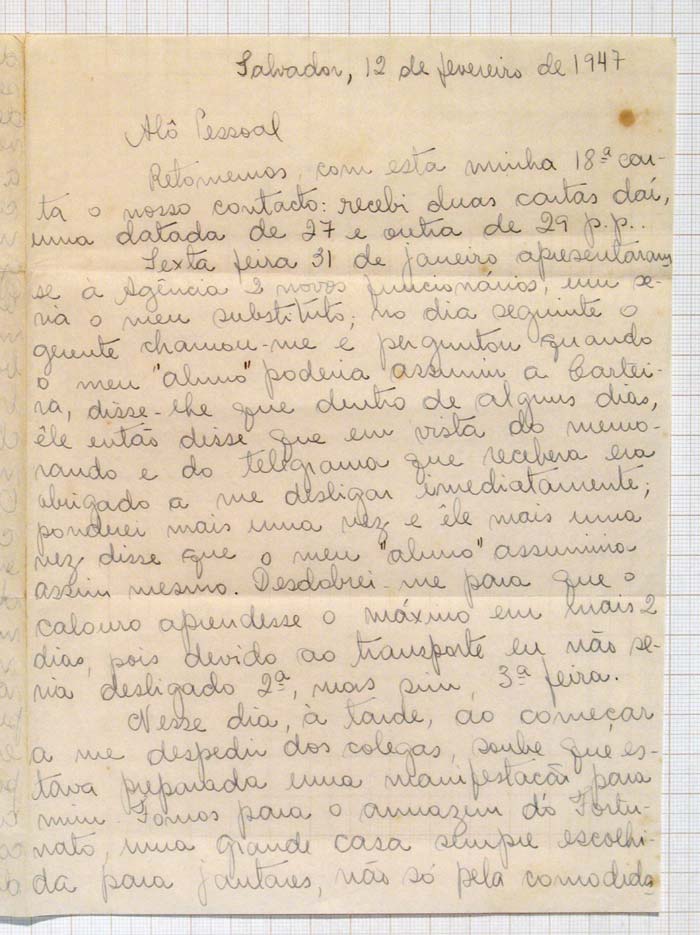 Salvador, 12 de fevereiro de 1947
Alô Pessoal
Retomemos, com esta minha 18ª car-
ta o nosso contacto: recebi duas cartas daí,
uma datada de 27 e outra de 29 p.p..
Sexta feira 31 de janeiro apresentaram
se à Agência 2 novos funcionários, um se-
ria o meu substituto; no dia seguinte o
gerente chamou-me e perguntou quando
o meu "aluno" poderia assumir a Cartei-
ra, disse-lhe que dentro de alguns dias,
êle então disse que em vista do memo-
rando e do telegrama que recebera era
obrigado a me desligar imediatamente;
ponderei mais uma vez e êle mais uma
vez disse que o meu "aluno" assumiria
assim mesmo. Desdobrei-me para que o
calouro aprendesse o máximo em mais 2
dias, pois devido ao transporte eu não se-
ria desligado 2ª, mas sim, 3ª feira.
Nesse dia, à tarde, ao começar
a me despedir dos colegas, soube que es-
tava preparada uma manifestação para
mim. Fomos para o armazem do Fortu-
nato, uma grande casa sempre escolhi-
da para jantares, não só pela comodida